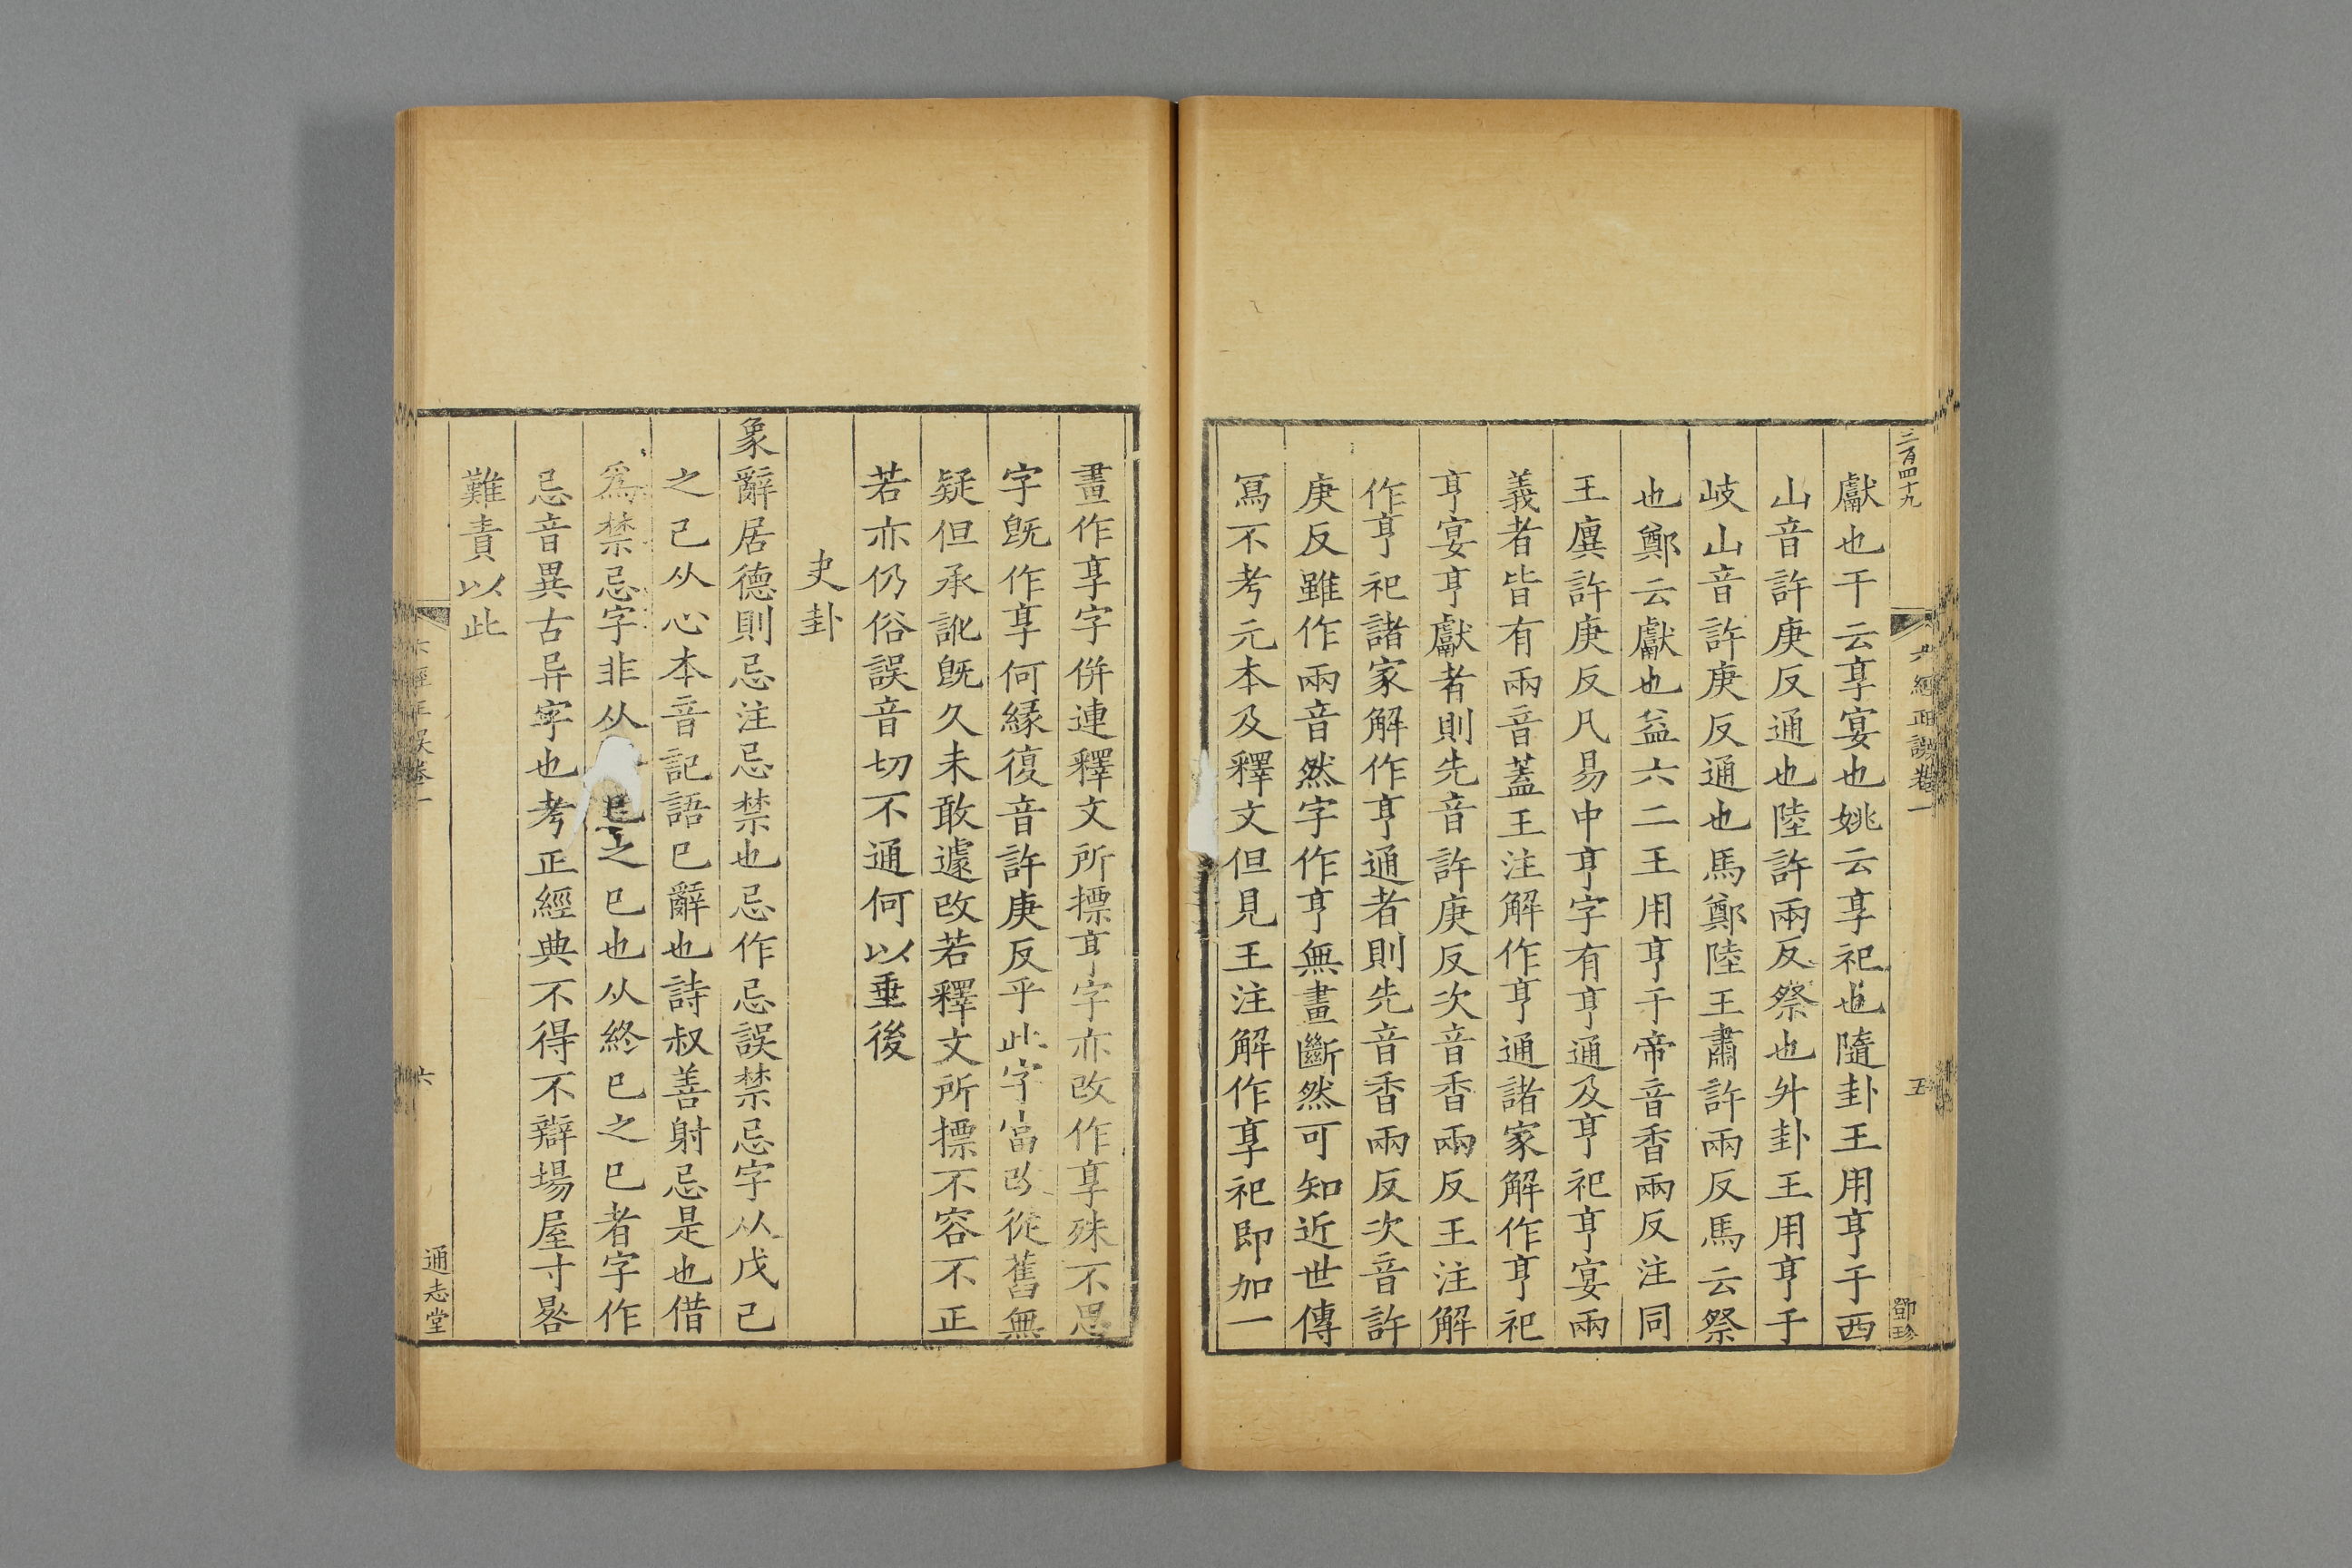 三百四十九
六經正誤卷一
五
鄧珍
獻也干云享宴也姚云享祀也隨卦王用亨于西
山音許庚反通也陸許兩反祭也升卦王用亨于
岐山音許庚反通也馬鄭陸王肅許兩反馬云祭
也鄭云獻也益六二王用亨于帝音香兩反注同
王廙許庚反凡易中亨字有亨通及亨祀亨宴兩
義者皆有兩音蓋王注解作亨通諸家解作亨祀
亨宴亨獻者則先音許庚反次音香兩反王注解
作亨祀諸家解作亨通者則先音香兩反次音許
庚反雖作兩音然字作亨無畫斷然可知近世傳
冩不考元本及釋文但見王注解作享祀即加一
畫作享字併連釋文所摽亨字亦改作享殊不思
字旣作享何緣復音許庚反乎此字當改從舊無
疑但承訛旣久未敢遽改若釋文所摽不容不正
若亦仍俗誤音切不通何以垂後
夬卦
象辭居德則忌注忌禁也忌作忌誤禁忌字从戊己
之己从心本音記語巳辭也詩叔善射忌是也借
爲禁忌字非从之巳也从終巳之巳者字作
忌音異古异字也考正經典不得不辯場屋寸晷
難責以此
六經正誤卷一
六
通志堂